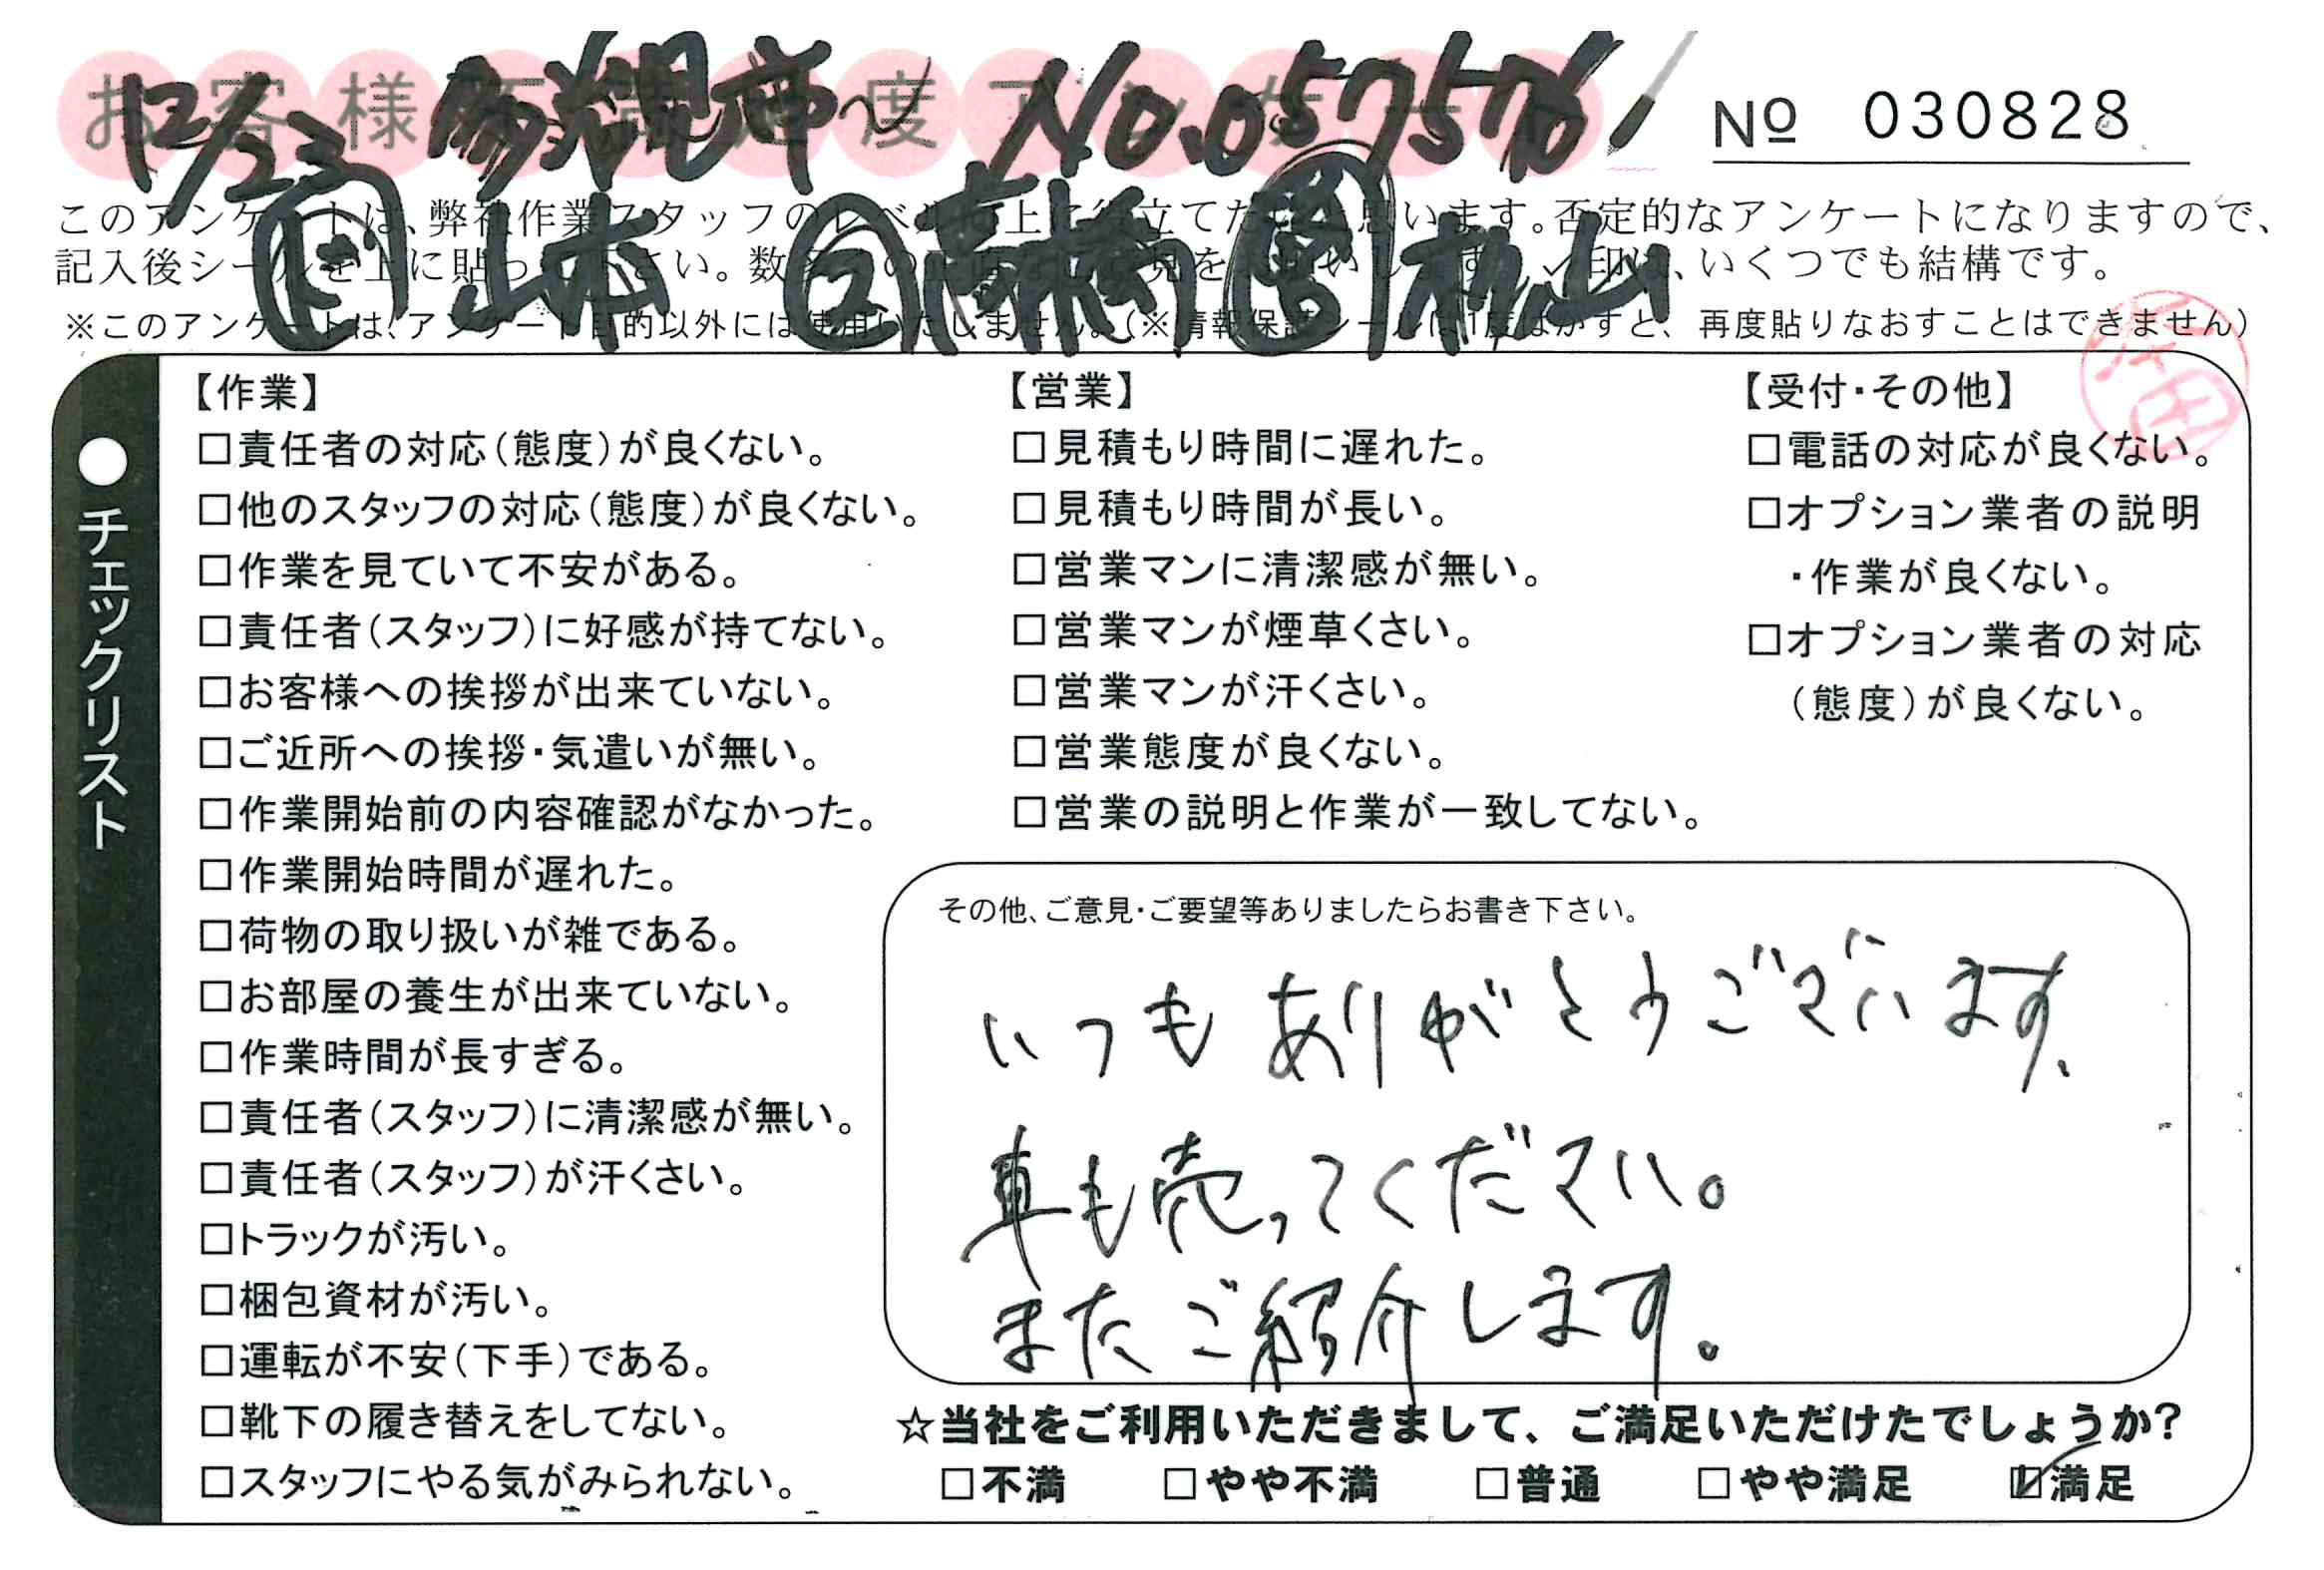 お客様 度ア
12/23 多 市 No.057576
№ 030828
このアンケートは、弊社作業スタッフのレベル 上 役立てた 思います。否定的なアンケートになりますので、
記入後シールを上に貼っ 下さい。数 の 見を い 印は、いくつでも結構です。
ド 山本 2 高橋 営 松山
※このアンケートは、アンケート目的以外には使用いたしません。(※情報保護シールは1度はがすと、再度貼りなおすことはできません)
●チェックリスト
【作業】
□責任者の対応(態度)が良くない。
□他のスタッフの対応(態度)が良くない。
□作業を見ていて不安がある。
□責任者(スタッフ)に好感が持てない。
□お客様への挨拶が出来ていない。
□ご近所への挨拶・気遣いが無い。
□作業開始前の内容確認がなかった。
□作業開始時間が遅れた。
□荷物の取り扱いが雑である。
□お部屋の養生が出来ていない。
□作業時間が長すぎる。
□責任者(スタッフ)に清潔感が無い。
□責任者(スタッフ)が汗くさい。
□トラックが汚い。
□梱包資材が汚い。
□運転が不安(下手)である。
□靴下の履き替えをしてない。
□スタッフにやる気がみられない。
【営業】
□見積もり時間に遅れた。
□見積もり時間が長い。
□営業マンに清潔感が無い。
□営業マンが煙草くさい。
□営業マンが汗くさい。
□営業態度が良くない。
□営業の説明と作業が一致してない。
【受付・その他】
□電話の対応が良くない。
□オプション業者の説明
・作業が良くない。
□オプション業者の対応
(態度)が良くない。
その他、ご意見・ご要望等ありましたらお書き下さい。
いつもありがとうございます、
車も売ってください。
またご紹介します。
☆当社をご利用いただきまして、ご満足いただけたでしょうか?
□不満 □やや不満 □普通 □やや満足 ☑満足